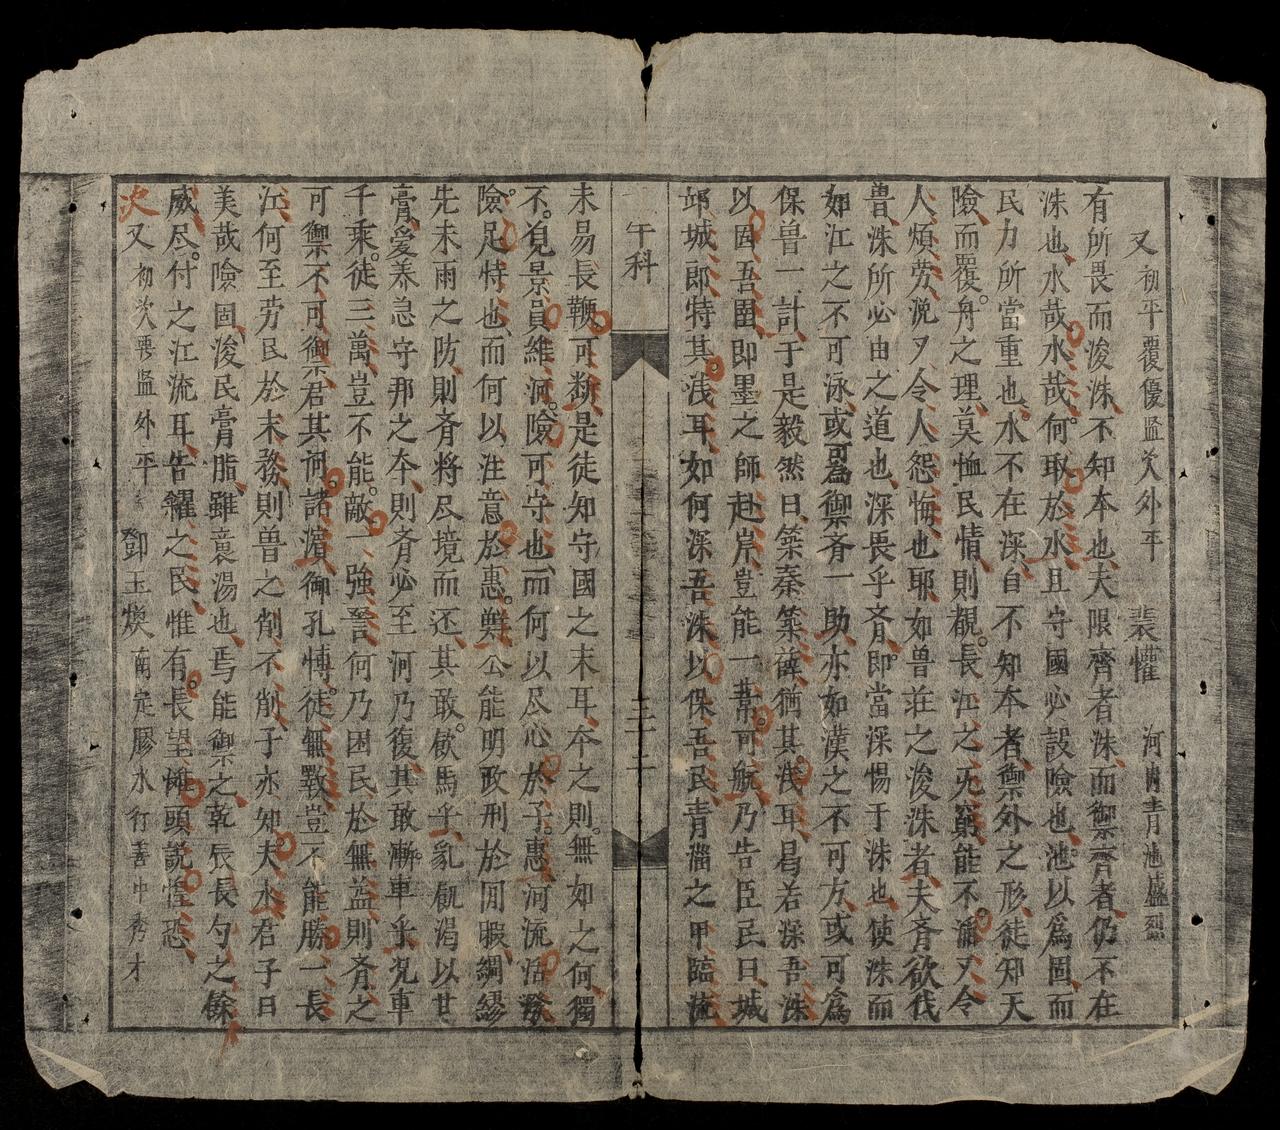 又 初平覆優監次外平 裴懽 河内青池盛烈
有所畏而浚洙不知本也夫限齊者洙而禦齊者仍不在
洙也水哉水哉何取於水且守國必設險也池以爲固而
民力所當重也水不在深自不知本者禦外之形徒知天
險而覆舟之理莫恤民情則覩長江之无窮能不 又令
人煩劳况又令人怨悔也耶如鲁荘之浚洙者夫斉欲伐
鲁洙所必由之道也深畏乎斉即當深惕于洙也使洙而
如江之不可泳或可為禦斉一助亦如漢之不可方或可爲
保鲁一計于是毅然曰築秦築薛犹其浅耳曷若深吾洙
以固吾圉即墨之師赴岸豈能一葦可航乃告臣民曰城
郎特其浅耳如何深吾洙以保吾民青淄之甲臨流
午科
三十二
未易長鞭可断是徒知守國之末耳夲之則無如之何獨
不見景員維河險可守也而何以尽心於子惠河流活潑
險足恃也而何以注意於惠鲜公能明政刑於閒暇綢繆
先未雨之防則斉将尽境而还其敢飲馬乎乳覩渴以甘
膏爱养急守邦之夲則斉必至河乃復其敢漸車乎况車
千乘徒三萬豈不能敵一強晉何乃困民於無益則斉之
可禦不可禦君其问諸濱御孔愽徒無斁豈不能勝一長
江何至劳民於末務則鲁之削不削子亦知夫水君子曰
美哉險固浚民膏脂雖 湯也焉能禦之乾辰長勺之餘
威尽付之江流耳告糴之民惟有長望滩頭説惶恐
次又 初次要監外平 鄧玉煥 南定膠水行善中秀才